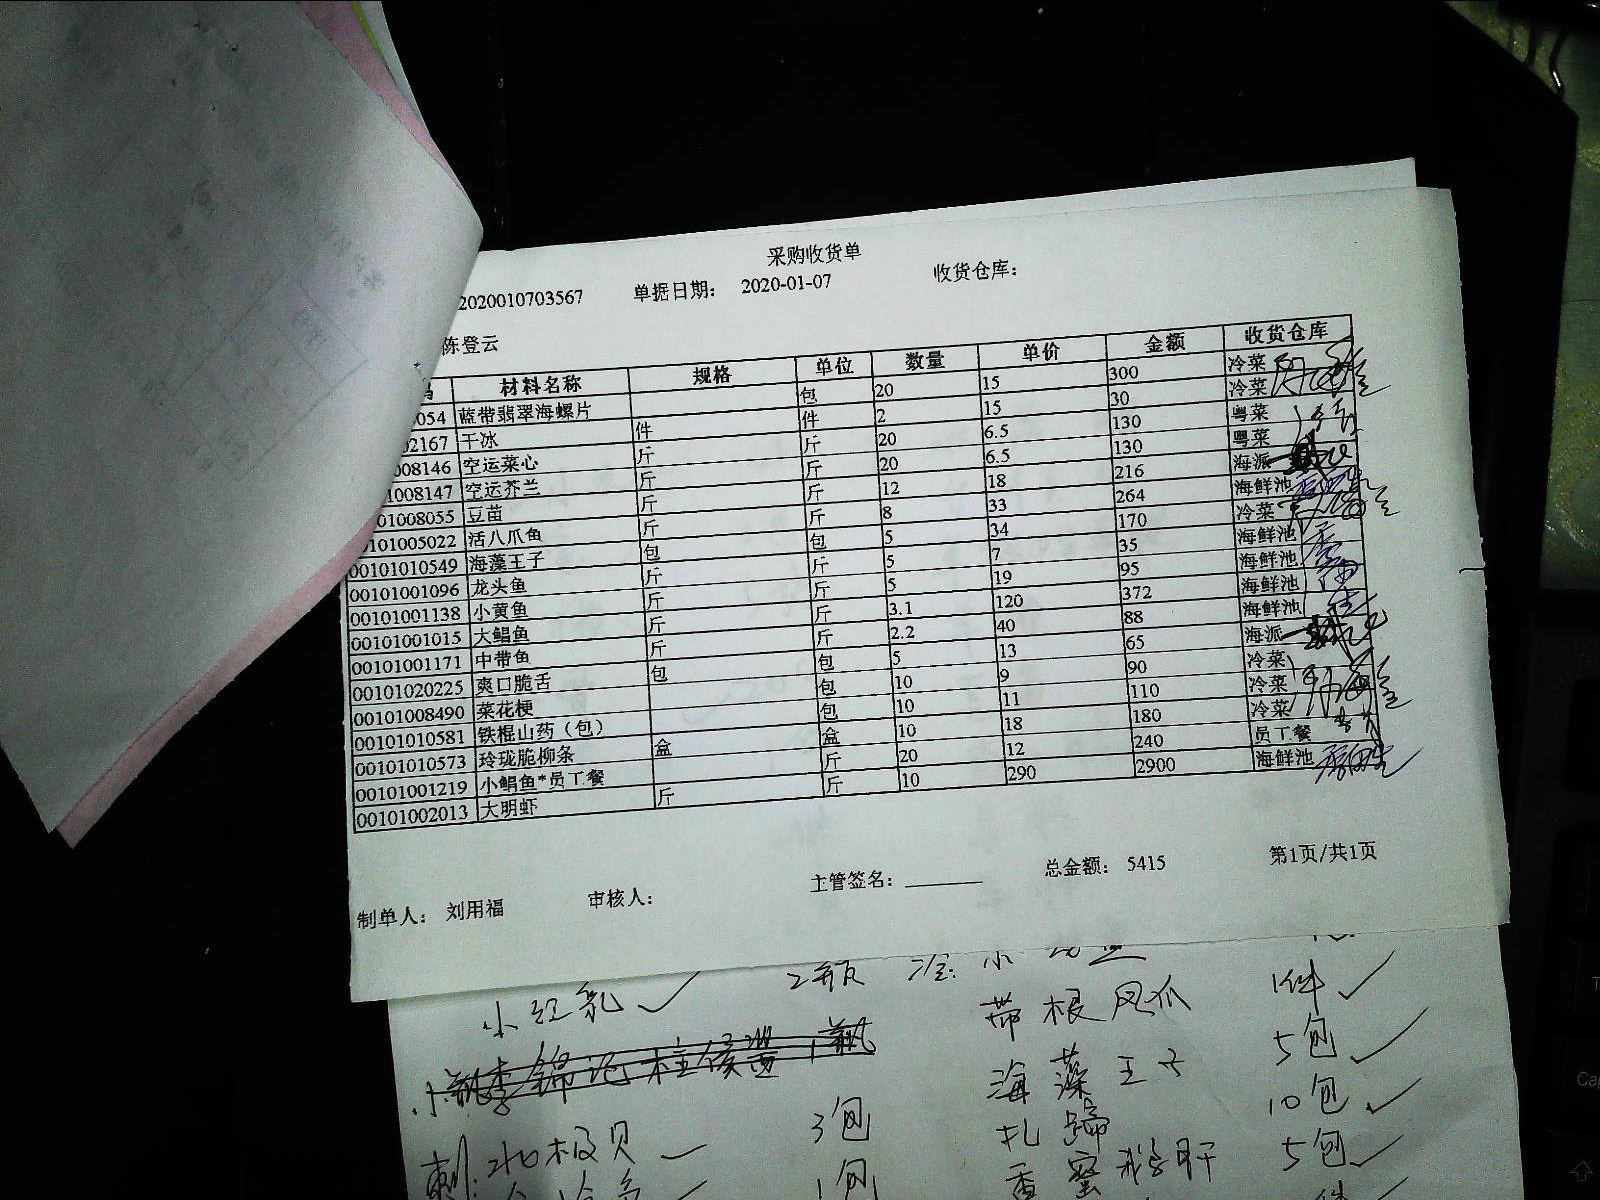 采购收货单
2020010703567 单据日期： 2020-01-07 收货仓库：
陈登云
材料名称 规格 单位 数量 单价 金额 收货仓库
054 蓝带翡翠海螺片 包 20 15 300 冷菜
02167 干冰 件 件 2 15 30 冷菜
008146 空运菜心 斤 斤 20 6.5 130 粤菜
1008147 空运芥兰 斤 斤 20 6.5 130 粤菜
01008055 豆苗 斤 斤 12 18 216 海派
0101005022 活八爪鱼 斤 斤 8 33 264 海鲜池
00101010549 海藻王子 包 包 5 34 170 冷菜
00101001096 龙头鱼 斤 斤 5 7 35 海鲜池
00101001138 小黄鱼 斤 斤 5 19 95 海鲜池
00101001015 大鲳鱼 斤 斤 3.1 120 372 海鲜池
00101001171 中带鱼 斤 斤 2.2 40 88 海鲜池
00101020225 爽口脆舌 包 包 5 13 65 海派
00101008490 菜花梗 包 10 9 90 冷菜
00101010581 铁棍山药（包） 包 10 11 110 冷菜
00101010573 玲珑脆柳条 盒 盒 10 18 180 冷菜
00101001219 小鲳鱼*员工餐 斤 20 12 240 员工餐
00101002013 大明虾 斤 斤 10 290 2900 海鲜池
制单人： 刘用福 审核人： 主管签名： 总金额： 5415 第1页/共1页
小红乳 2瓶
带根凤爪 1件
海藻王子 5包
3包 扎蹄 10包
5包